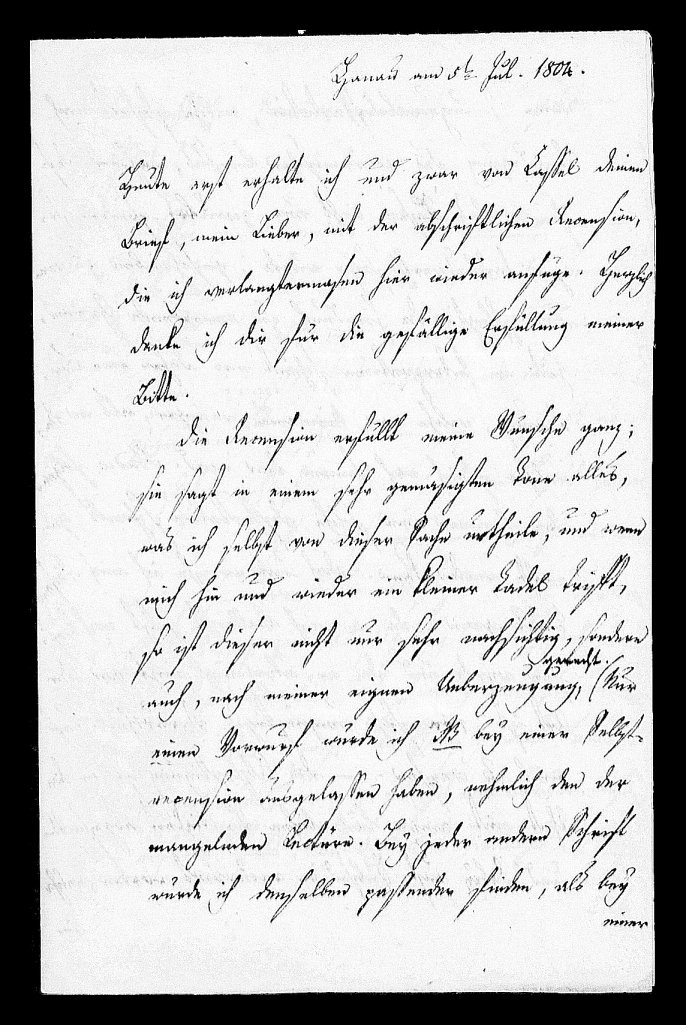 Hanau am 5t Jul. 1804.
Heute erst erhalte ich und zwar von Cassel deinen
Brief, mein Lieber, mit der abschriftlichen Recension,
die ich verlangtermasen hier wieder anfüge. Herzlich
danke ich dir für die gefällige Erfüllung meiner
Bitte.
Die Recension erfüllt meine Wünsche ganz;
sie sagt in einem sehr gemäsigten Tone alles,
was ich selbst von dieser Sache urtheile, und wenn
mich hin und wieder ein kleiner Tadel trifft,
so ist dieser nicht nur sehr nachsichtig, sondern
auch, nach meiner eignen Ueberzeugung, gerecht. (Nur
einen Vorwurf würde ich NB bey einer Selbst-
recension ausgelassen haben, nehmlich den der
mangelnden Lectüre. Bey jeder andern Schrift
würde ich denselben passender finden, als bey
einer